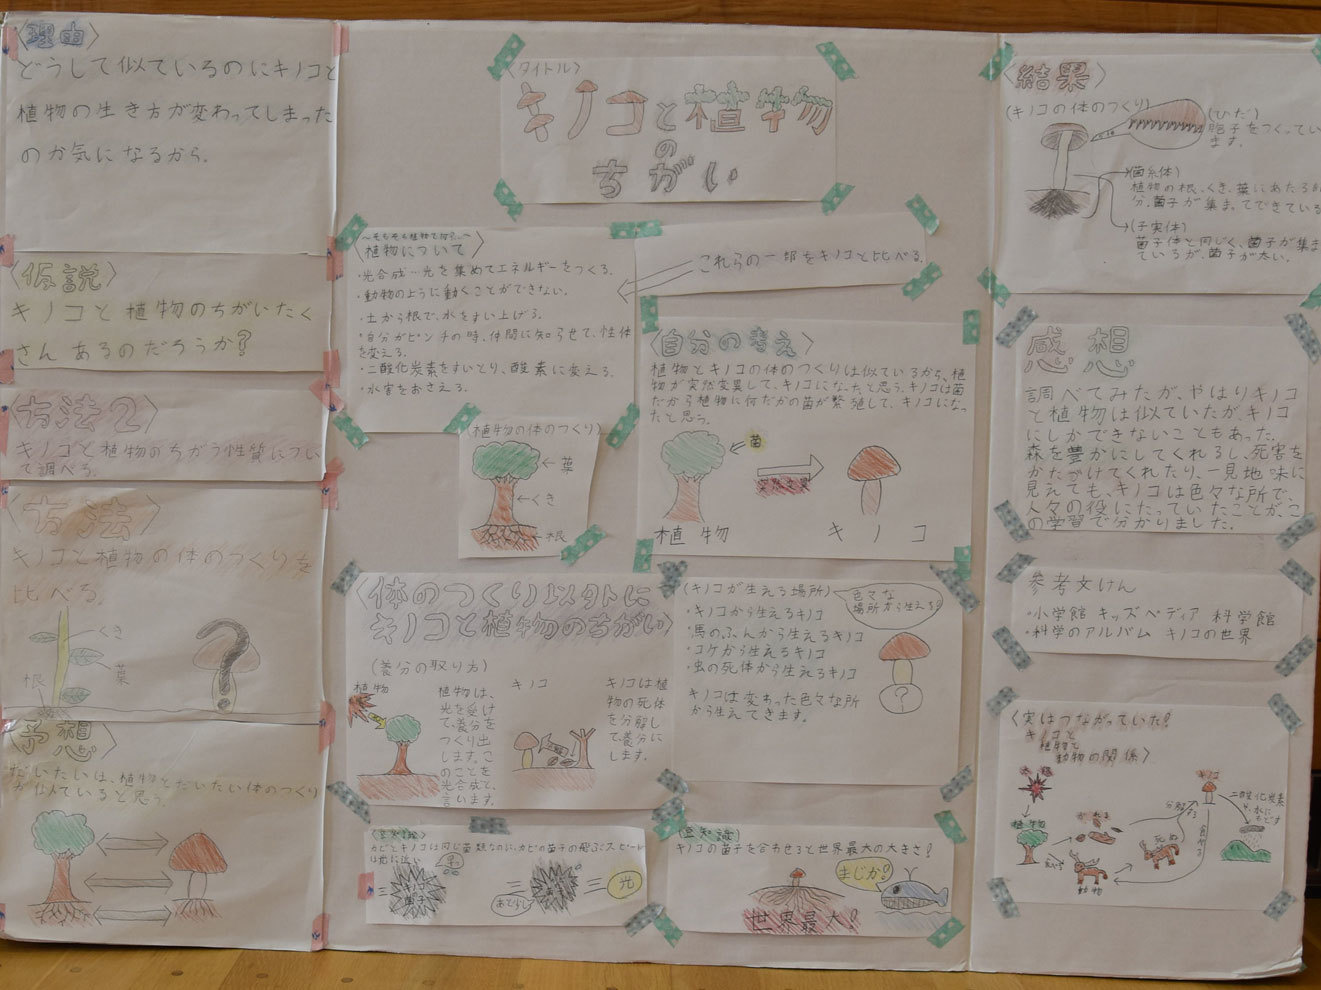 〈理由〉
どうして似ているのにキノコと
植物の生き方が変わってしまった
のか気になるから。
〈仮説〉
キノコと植物のちがいたく
さんあるのだろうか？
〈方法2〉
キノコと植物のちがう性質につい
て調べる。
〈方法〉
キノコと植物の体のつくりを
比べる。
くき
葉
根
？
〈予想〉
だいたいは、植物とだいたい体のつくり
が似ていると思う。
〈タイトル〉
キノコと植物
の
ちがい
植物について〉
・光合成…光を集めてエネルギーをつくる。
・動物のように動くことができない。
・土から根で、水をすい上げる。
・自分がピンチの時、仲間に知らせて、性体
を変える。
・二酸化炭素をすいとり、酸素に変える。
・水害をおさえる。
これらの一部をキノコと比べる。
(植物の体のつくり)
葉
くき
根
〈自分の考え〉
植物とキノコの体のつくりは似ているから、植
物が突然変異して、キノコになったと思う。キノコは菌
だから植物に何だかの菌が繁殖して、キノコになっ
たと思う。
菌
突然変異
植物
キノコ
〈体のつくり以外に
キノコと植物のちがい〉
(養分の取り方)
植物
植物は、
光を受け
て、養分を
つくり出
します。こ
のことを
光合成と、
言います。
キノコ
キノコは植
物の死体
を分解し
て、養分に
します。
(キノコが生える場所)
色々な
場所から生える！
・キノコから生えるキノコ
・馬のふんから生えるキノコ
・コケから生えるキノコ
・虫の死体から生えるキノコ
キノコは変わった色々な所
から生えてきます。
？
〈豆知識〉
カビとキノコは同じ菌類なのに、カビの菌子の飛ぶスピード
は光に近い
光
〈豆知識〉
キノコの菌子を合わせると世界最大の大きさ！
まじか！
世界最大！
〈結果〉
(キノコの体のつくり)
(ひだ)
胞子をつくってい
ます。
(菌糸体)
植物の根、くき、葉にあたる部
分。菌子が集まってできている
(子実体)
菌子体と同じく、菌子が集ま
ているが、菌子が太い。
感想
調べてみたが、やはりキノコ
と植物は似ていたが、キノコ
にしかできないこともあった。
森を豊かにしてくれるし、死害を
かたづけてくれたり、一見地味に
見えても、キノコは色々な所で、
人々の役にたっていたことが、こ
の学習で分かりました。
参考文けん
・小学館 キッズペディア 科学館
・科学のアルバム キノコの世界
〈実はつながっていた！
キノコと
植物と
動物の関係〉
太陽
キノコ
植物
かれる
分解する
二酸化炭素
や、水に
もどす
死ぬ
食べる
動物